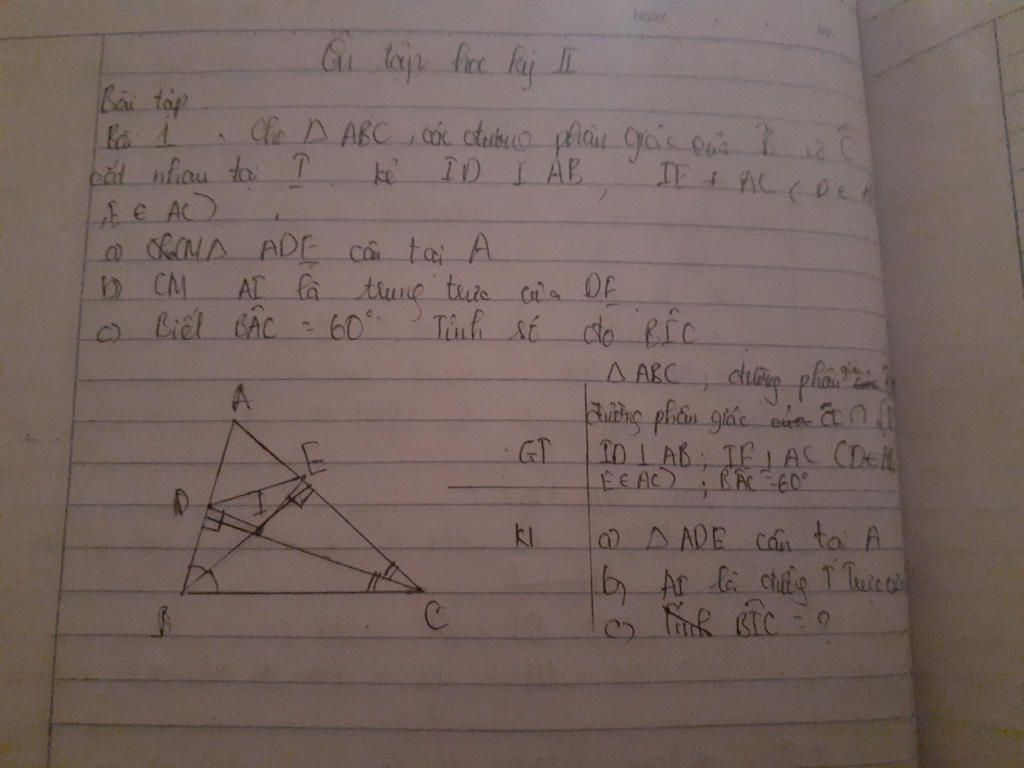 Ngày
No
Ôn tập học kỳ II
Bài tập
Bài 1 . Cho Δ ABC, các đường phân giác của B̂ và Ĉ
cắt nhau tại I kẻ ID ⊥ AB, IE ⊥ AC ( D ∈
, E ∈ AC)
a) CM Δ ADE cân tại A
b) CM AI là trung trực của DE
c) Biết BÂC = 60° Tính số đo BÎC
Δ ABC, đường phân giác
đường phân giác
GT ID ⊥ AB; IE ⊥ AC (D ∈
E ∈ AC) ; BÂC = 60°
Kl a) Δ ADE cân tại A
b, AI là đường T Trực
c) Tính BÎC = ?
A
E
D
I
B
C